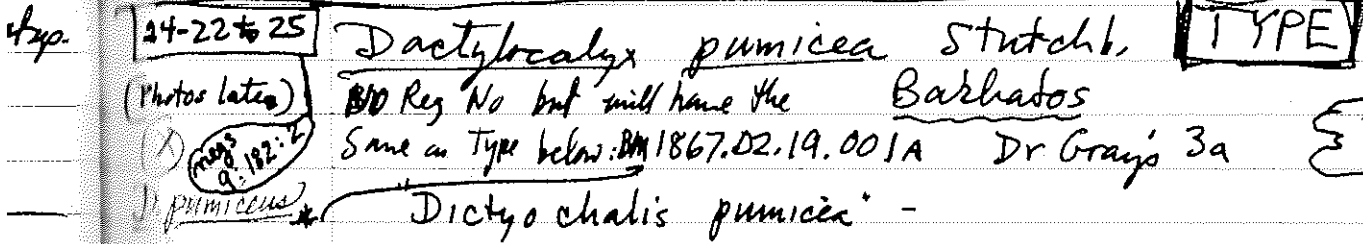 24-22 to 25 Dactylocalyx pumicea Stutchb. TYPE
(Photos later) NO Reg No but will have the Barbados
(X) negs 9:182:2 Same as Type below: BM 1867.02.19.001A Dr Gray's 3a
D. pumiceus * "Dictyochalis pumicea" -